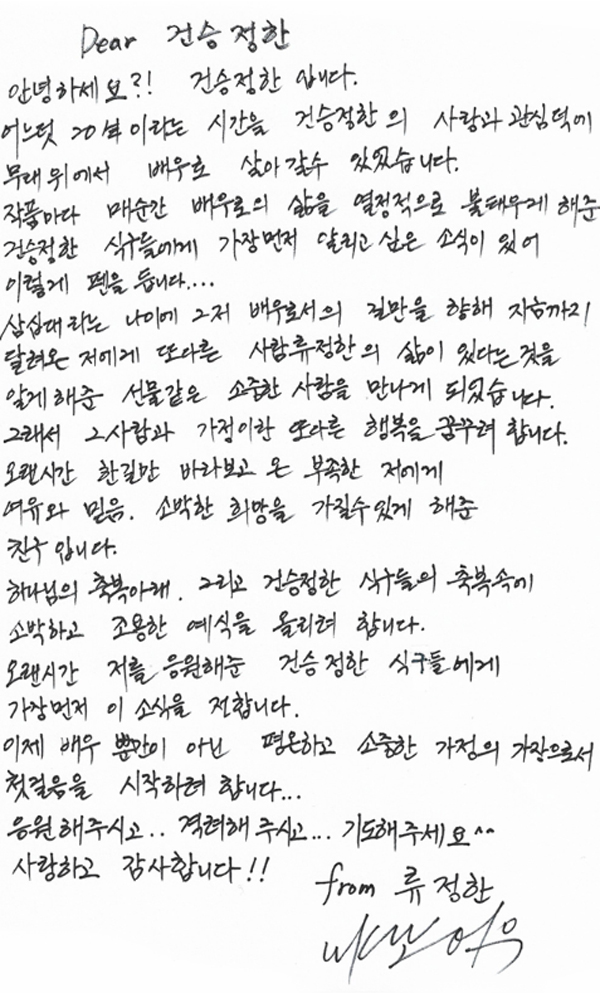 Dear 건승정한
안녕하세요?! 건승정한 입니다.
어느덧 20년이라는 시간을 건승정한의 사랑과 관심덕에
무대위에서 배우로 살아갈수 있었습니다.
작품마다 매순간 배우로의 삶을 열정적으로 불태우게 해준
건승정한 식구들에게 가장먼저 알리고 싶은 소식이 있어
이렇게 펜을 듭니다....
삼십대라는 나이에 그저 배우로서의 길만을 향해 지금까지
달려온 저에게 또다른 사람류정한의 삶이 있다는것을
알게해준 선물같은 소중한 사람을 만나게 되었습니다.
그래서 그사람과 가정이란 또다른 행복을 꿈꾸려 합니다.
오랜시간 한길만 바라보고 온 부족한 저에게
여유와 믿음. 소박한 희망을 가질수있게 해준
친구입니다.
하나님의 축복아래. 그리고 건승정한 식구들의 축복속에
소박하고 조용한 예식을 올리려 합니다.
오랜시간 저를 응원해준 건승정한 식구들에게
가장먼저 이 소식을 전합니다.
이제 배우 뿐만이 아닌 평온하고 소중한 가정의 가장으로서
첫걸음을 시작하려 합니다...
응원해주시고.. 격려해주시고... 기도해주세요^^
사랑하고 감사합니다!!
from 류정한